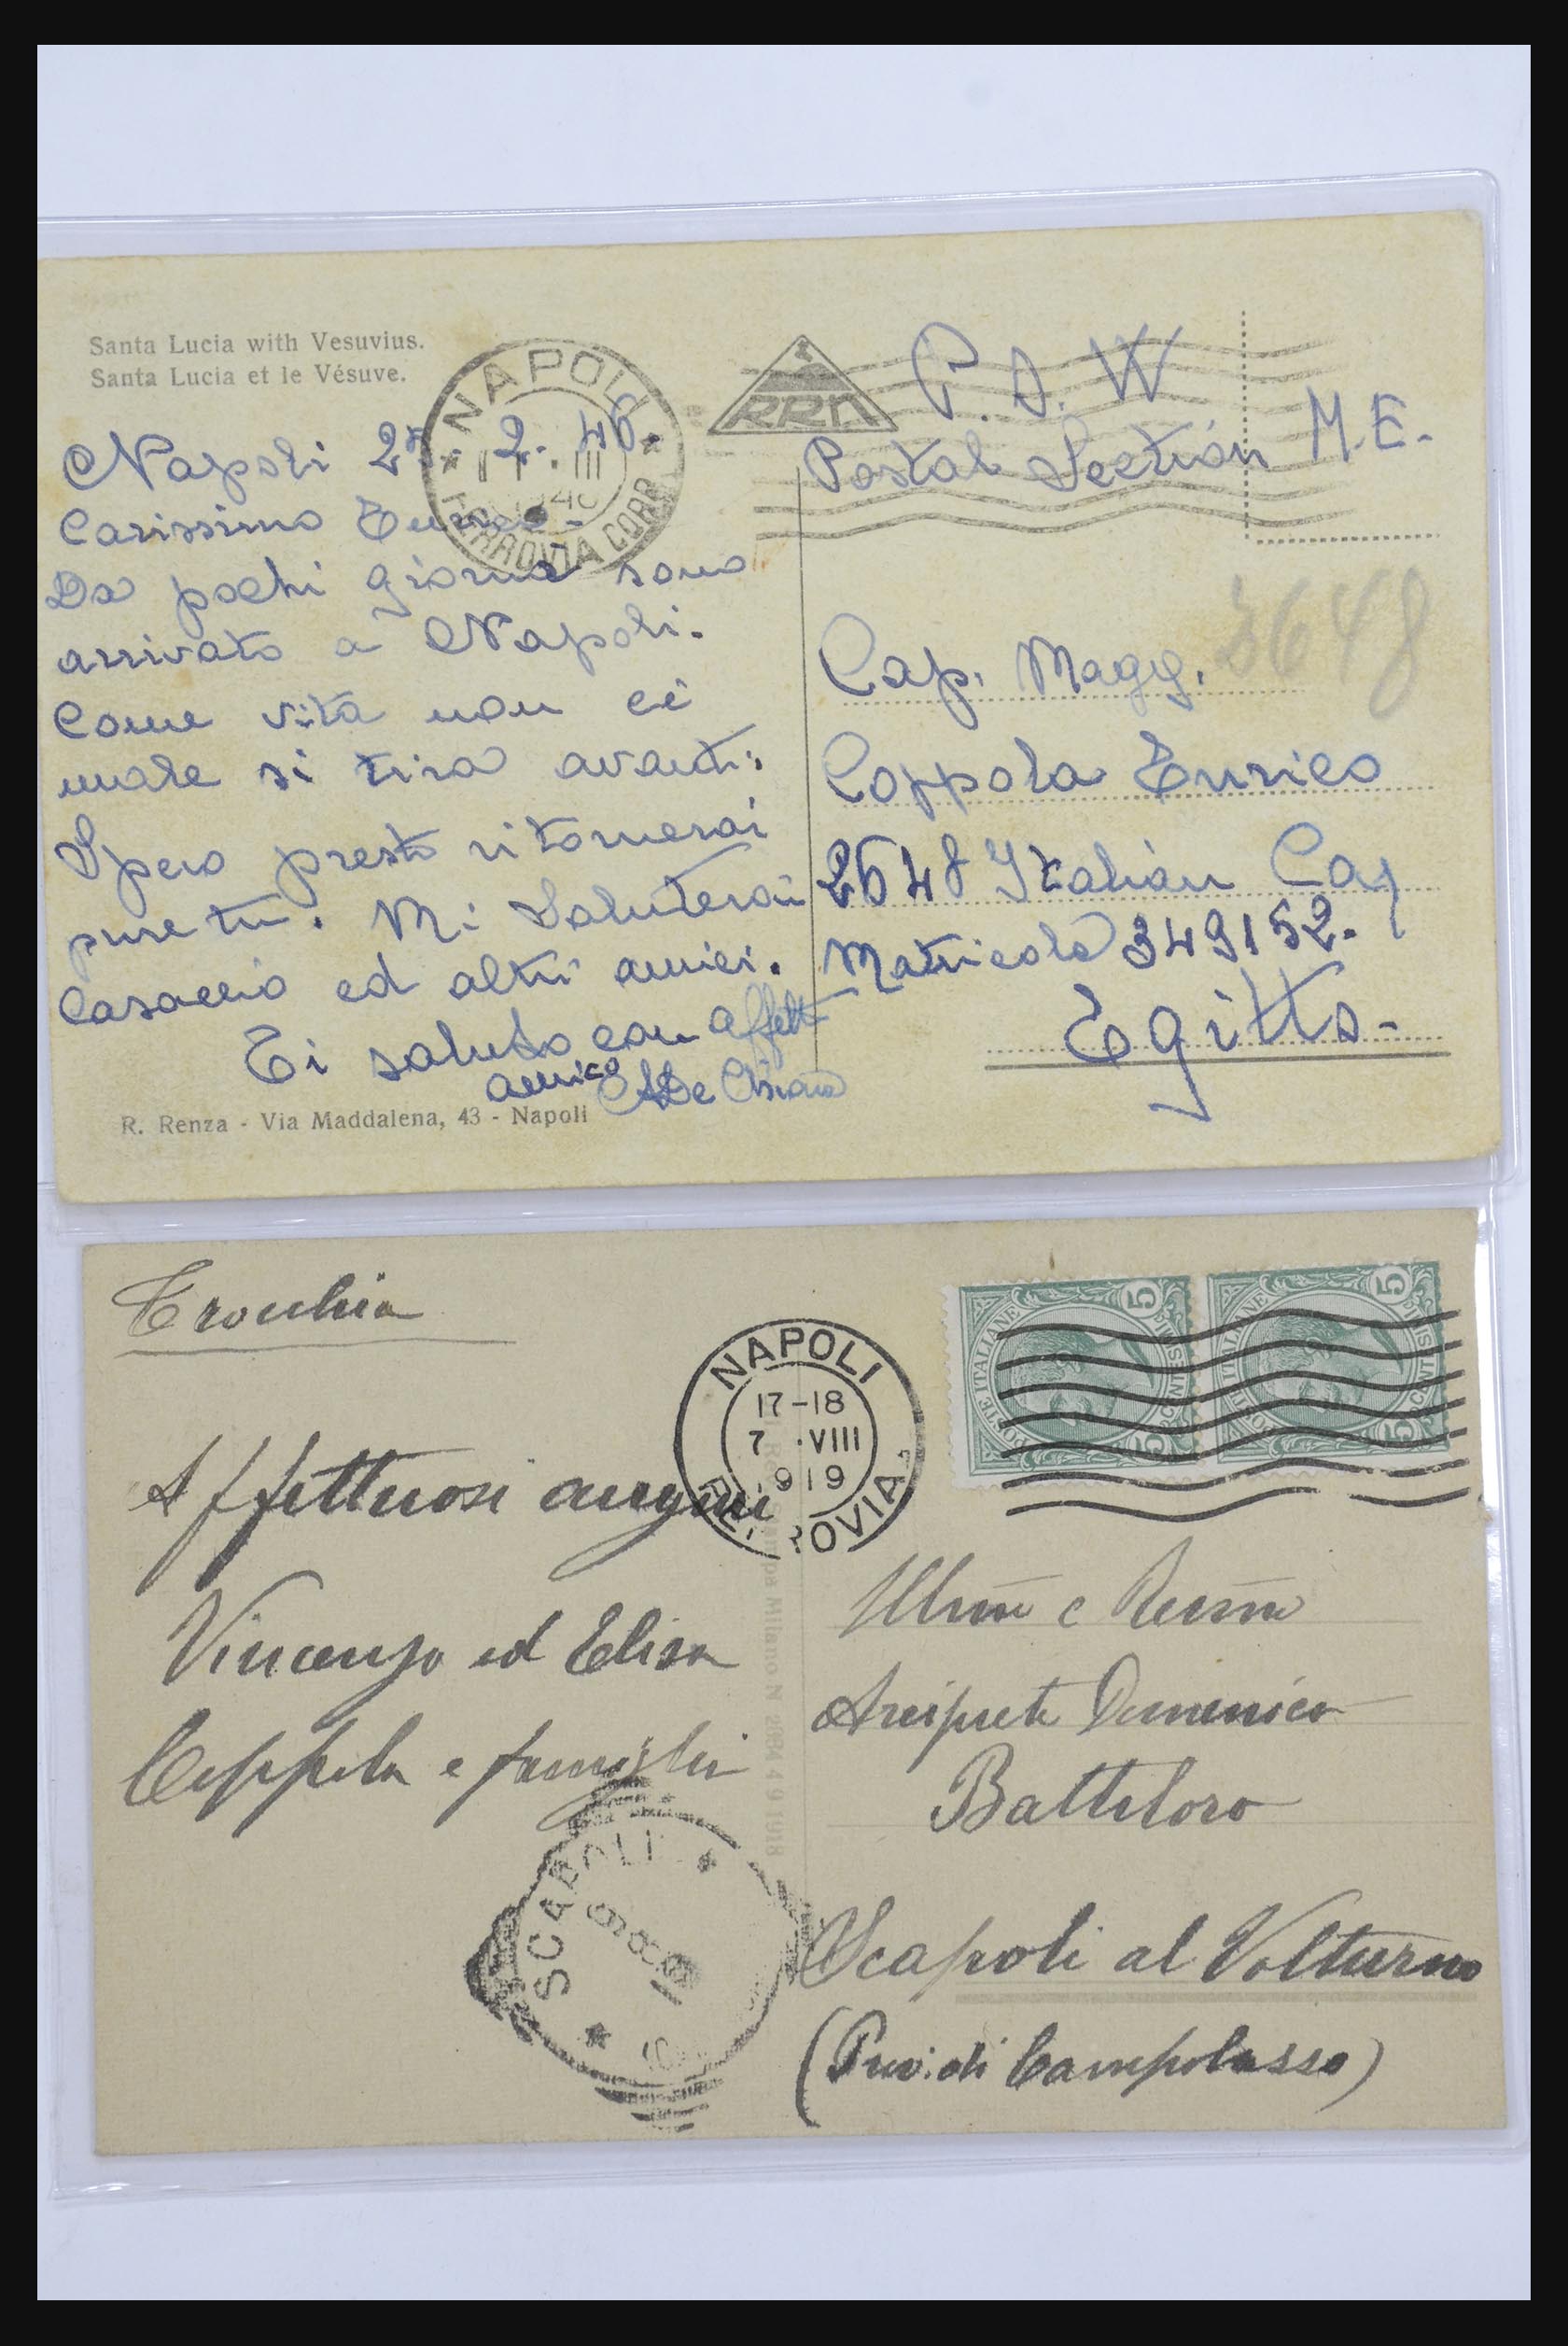 Santa Lucia with Vesuvius.
Santa Lucia et le Vésuve.
NAPOLI
FERROVIA CORR
Napoli 27. 2. 46.
Carissimo Enrico-
Da pochi giorni sono
arrivato a Napoli.
Come vita non ci
male si tira avanti.
Spero presto ritornerai
pure tu. Mi Saluterai
Casaccio ed altri amici.
Ti saluto con affetto
amico De Chiara
R. Renza - Via Maddalena, 43 - Napoli
RRN
P. O. W
Postal Section M.E.
3648
Cap. Magg.
Coppola Enrico
2648 Italian Coy
Matricola 349152.
Egitto-
Trocchia
Affettuosi auguri
Vincenzo ed Elisa
Coppola e famiglia
SCAPOLI
NAPOLI
17-18
7 ·VIII
1919
FERROVIA
POSTE ITALIANE
5 CENTESIMI 5
POSTE ITALIANE
5 CENTESIMI 5
Stampa Milano N 2984 4 9 1918
Illmo e Revmo
Arciprete Domenico
Battiloro
Scapoli al Volturno
(Prov. di Campobasso)